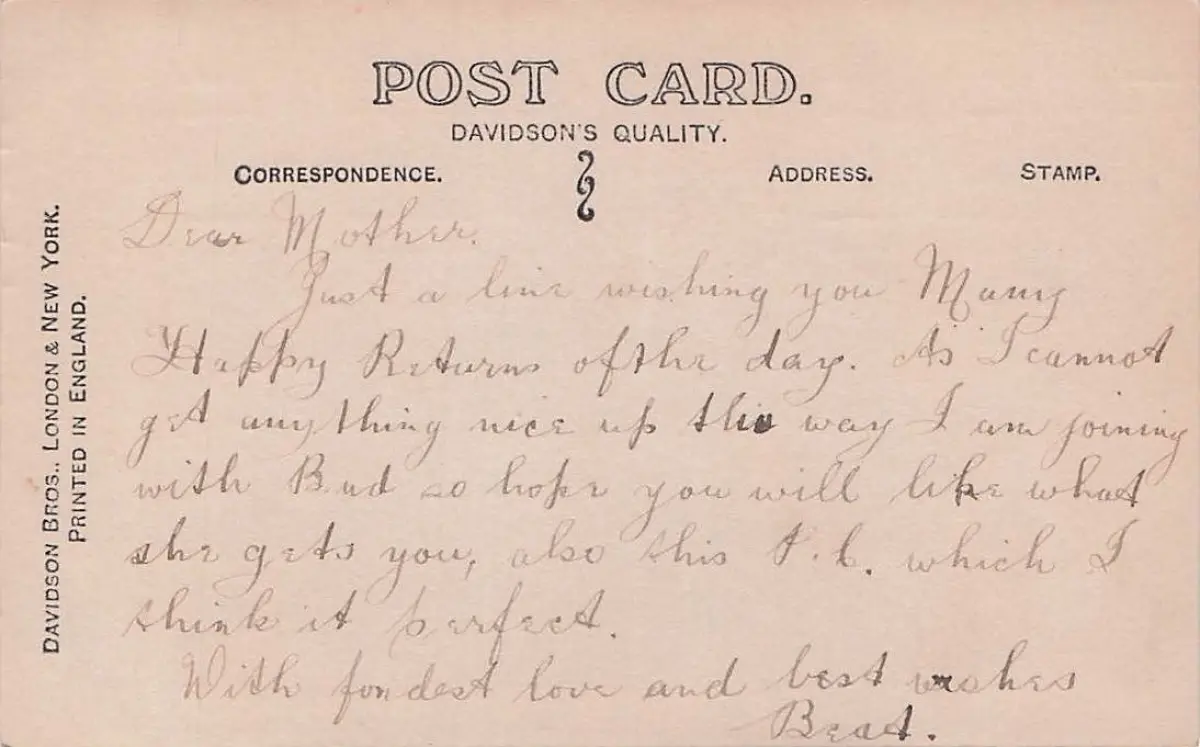 POST CARD.
DAVIDSON'S QUALITY.
CORRESPONDENCE. ADDRESS. STAMP.
DAVIDSON BROS., LONDON & NEW YORK.
PRINTED IN ENGLAND.
Dear Mother.
Just a line wishing you Many
Happy Returns of the day. As I cannot
get anything nice up this way I am joining
with Bud so hope you will like what
she gets you, also this P.C. which I
think it perfect.
With fondest love and best wishes
Beat.